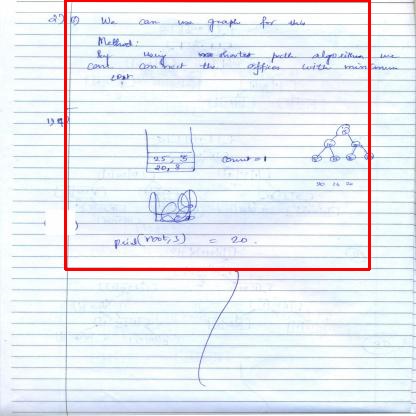 2) b) We can use graph for this
Method:
By using shortest path algorithm we
can connect the offices with minimum
cost
25, 5
20, 3
count = 1
20 16 20
(root, 3) = 20.